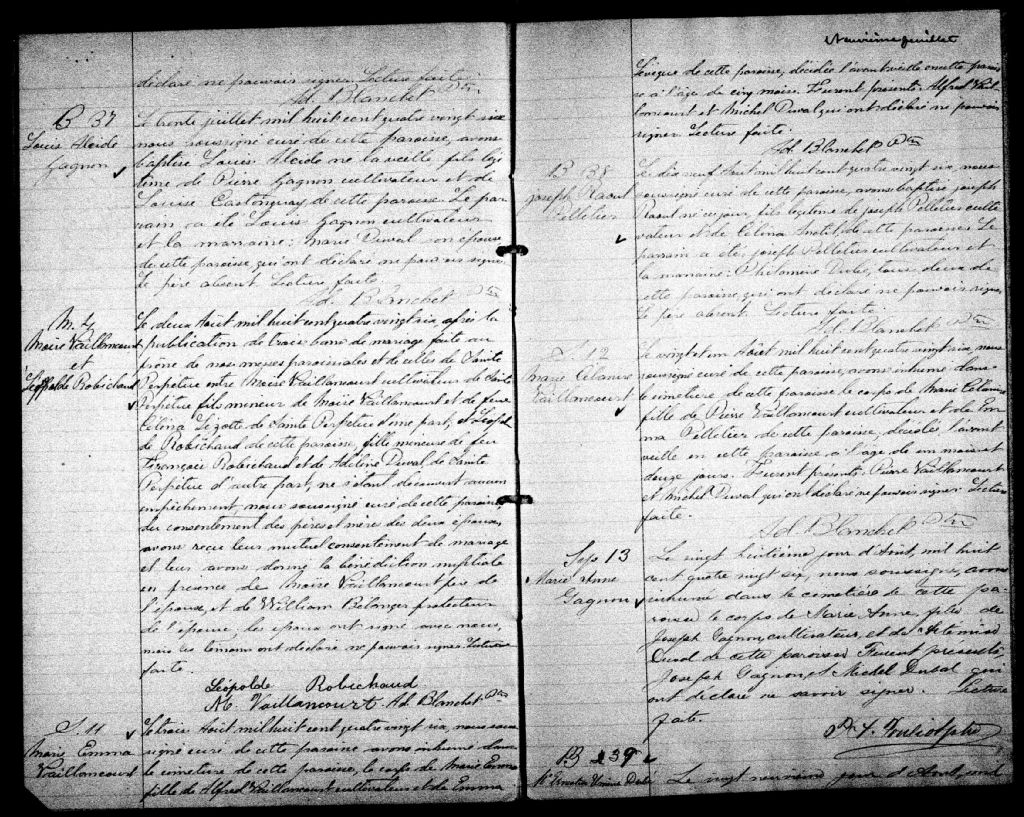 déclaré ne pouvoir signer. Lecture faite.
Ad. Blanchet Ptre
B 37
Louis Alcide
Gagnon
Le trente juillet mil huit cent quatre vingt six
nous soussigné curé de cette paroisse, avons
baptisé Louis Alcide né la veille, fils légi
time de Pierre Gagnon cultivateur et de
Louise Castonguay de cette paroisse. Le par
rain a été Louis Gagnon cultivateur
et la marraine: Marie Duval son épouse
de cette paroisse, qui ont déclaré ne pouvoir signer
le père absent. Lecture faite.
Ad. Blanchet Ptre
M. 4
Moïse Vaillancourt
et
Léopolde Robichaud
Le deux Août mil huit cent quatre vingt six, après la
publication de trois bans de mariage faite au
prône de nos messes paroissiales et de celles de Sainte
Perpétue entre Moïse Vaillancourt cultivateur de Sainte
Perpétue fils mineur de Moïse Vaillancourt et de feue
Célina Lizotte de Sainte Perpétue d'une part, et Léopol
de Robichaud de cette paroisse, fille mineure de feu
François Robichaud et de Adeline Duval de Sainte
Perpétue d'autre part, ne s'étant découvert aucun
empêchement, nous soussigné curé de cette paroisse
du consentement des pères et mères des deux époux,
avons reçu leur mutuel consentement de mariage
et leur avons donné la bénédiction nuptiale
en présence de Moïse Vaillancourt père de
l'époux, et de William Bélanger protecteur
de l'épouse, les époux ont signé avec nous,
mais les témoins ont déclaré ne pouvoir signer. Lecture
faite.
Léopolde Robichaud
M. Vaillancourt Ad. Blanchet Ptre
S. 11
Marie Emma
Vaillancourt
Le trois Août mil huit cent quatre vingt six, nous sous
signé curé de cette paroisse avons inhumé dans
le cimetière de cette paroisse, le corps de Marie Emma
fille de Alfred Vaillancourt cultivateur et de Emma
Neuvième feuillet
Lévèque de cette paroisse, décédée l'avant veille en cette parois
se à l'âge de cinq mois. Furent présents: Alfred Vail
lancourt et Michel Duval qui ont déclaré ne pouvoir
signer. Lecture faite.
Ad. Blanchet Ptre
B 38
Joseph Raoul
Pelletier
Le dix neuf Août mil huit cent quatre vingt six, nous
soussigné curé de cette paroisse, avons baptisé Joseph
Raoul né ce jour, fils légitime de Joseph Pelletier culti
vateur et de Célina de cette paroisse. Le
parrain a été, Joseph Pelletier cultivateur et
la marraine: Philomène Dubé, tous deux de
cette paroisse, qui ont déclaré ne pouvoir signer,
le père absent. Lecture faite.
Ad. Blanchet Ptre
S. 12
Marie Célanire
Vaillancourt
Le vingt et un Août mil huit cent quatre vingt six, nous
soussigné curé de cette paroisse, avons inhumé dans
le cimetière de cette paroisse le corps de Marie Célanire
fille de Pierre Vaillancourt cultivateur et de Em
ma Pelletier de cette paroisse, décédée l'avant
veille en cette paroisse à l'âge de un mois et
douze jours. Furent présents: Pierre Vaillancourt
et Michel Duval qui ont déclaré ne pouvoir signer. Lecture
faite.
Ad. Blanchet Ptre
Sep 13
Marie Anne
Gagnon
Le vingt huitième jour d'Août, mil huit
cent quatre vingt six, nous soussigné, avons
inhumé dans le cimetière de cette pa-
roisse le corps de Marie Anne, fille de
Joseph Gagnon, cultivateur, et de Artemise
Duval de cette paroisse. Furent présents
Joseph Gagnon, et Michel Duval qui
ont déclaré ne savoir signer. Lecture
faite.
B 39
Le vingt neuvième jour d'Août, mil